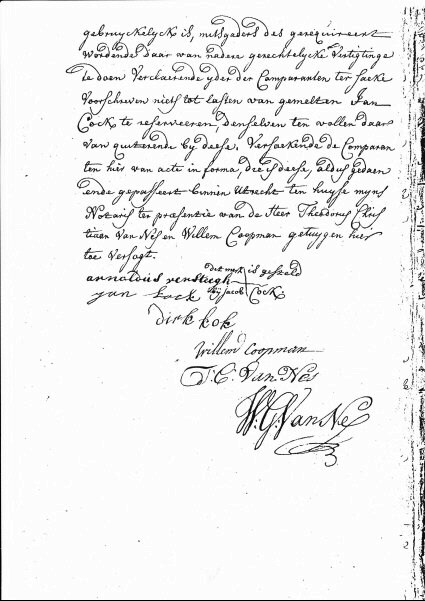 gebruyckelyck is, mitsgaders des gerequireert
wordende daar van nadere gerechtelycke vertigtinge
te doen Verclaerende yder der Comparanten ter saeke
Voorschreven niets tot lasten van gemelten Jan
Cock te reserveeren, denselven ten vollen daar
van quiterende by deese. Versoekende de Comparan
ten hier van acte in forma, die is deese, aldus gedaen
ende gepasseert binnen Utrecht ten huyse myns
Notaris ter præsentie van de Heer Theodorus Chris
tiaan Van Nes en Willem Coopman getuygen hier
toe versogt.
arnoldus versteegh dit merk is gesteld
jan kock by Jacob Cock.
dirk kok
Willem Coopman
T: C: Van Nes
W: G: Van Nes